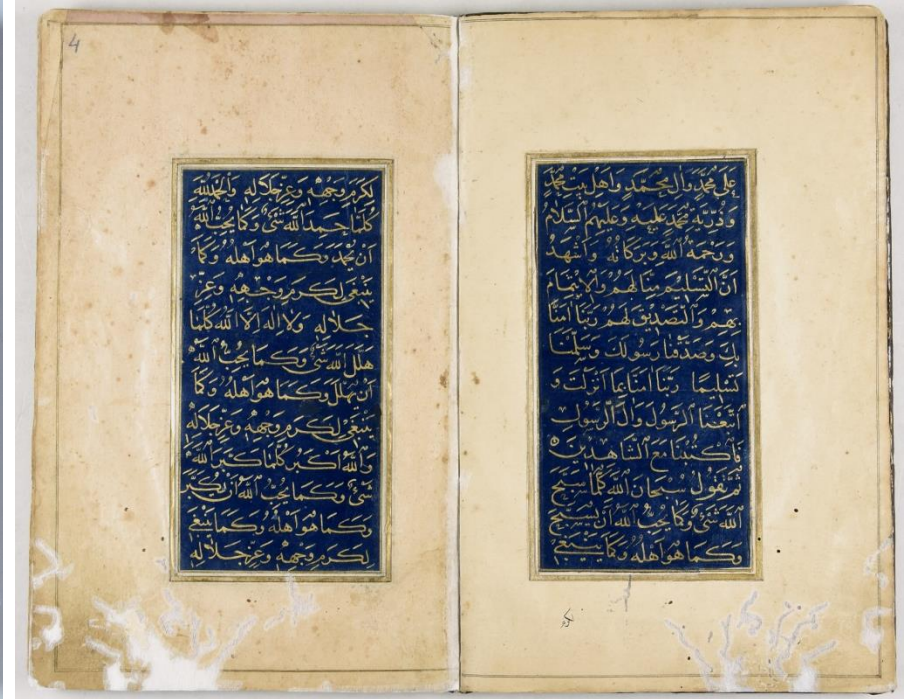 عَلىٰ مُحَمَّدٍ وَآلِ مُحَمَّدٍ وَاَهْلِ بَيْتِ مُحَمَّدٍ
وَذُرِّيَّةِ مُحَمَّدٍ عَلَيْهِ وَعَلَيْهِمُ السَّلَامُ
وَرَحْمَةُ اللهِ وَبَرَكَاتُهُ وَاَشْهَدُ
اَنَّ التَّسْلِيمَ مِنَّا لَهُمْ وَالْاِيتِمَامَ
بِهِمْ وَالتَّصْدِيقَ لَهُمْ رَبَّنَا آمَنَّا
بِكَ وَصَدَّقْنَا رَسُولَكَ وَسَلَّمْنَا
تَسْلِيمًا رَبَّنَا آمَنَّا بِمَا اَنْزَلْتَ وَ
اتَّبَعْنَا الرَّسُولَ وَآلَ الرَّسُولِ
فَاكْتُبْنَا مَعَ الشَّاهِدِينَ
ثُمَّ تَقُولُ سُبْحَانَ اللهِ كُلَّمَا سَبَّحَ
اللهَ شَيْءٌ وَكَمَا يُحِبُّ اللهُ اَنْ يُسَبَّحَ
وَكَمَا هُوَ اَهْلُهُ وَكَمَا يَنْبَغِي
لِكَرَمِ وَجْهِهِ وَعِزِّ جَلَالِهِ وَالْحَمْدُ لِلّٰهِ
كُلَّمَا حَمِدَ اللهَ شَيْءٌ وَكَمَا يُحِبُّ اللهُ
اَنْ يُحْمَدَ وَكَمَا هُوَ اَهْلُهُ وَكَمَا
يَنْبَغِي لِكَرَمِ وَجْهِهِ وَعِزِّ
جَلَالِهِ وَلَا اِلٰهَ اِلَّا اللهُ كُلَّمَا
هَلَّلَ اللهَ شَيْءٌ وَكَمَا يُحِبُّ اللهُ
اَنْ يُهَلَّلَ وَكَمَا هُوَ اَهْلُهُ وَكَمَا
يَنْبَغِي لِكَرَمِ وَجْهِهِ وَعِزِّ جَلَالِهِ
وَاللهُ اَكْبَرُ كُلَّمَا كَبَّرَ اللهَ
شَيْءٌ وَكَمَا يُحِبُّ اللهُ اَنْ يُكَبَّرَ
وَكَمَا هُوَ اَهْلُهُ وَكَمَا يَنْبَغِي
لِكَرَمِ وَجْهِهِ وَعِزِّ جَلَالِهِ
4